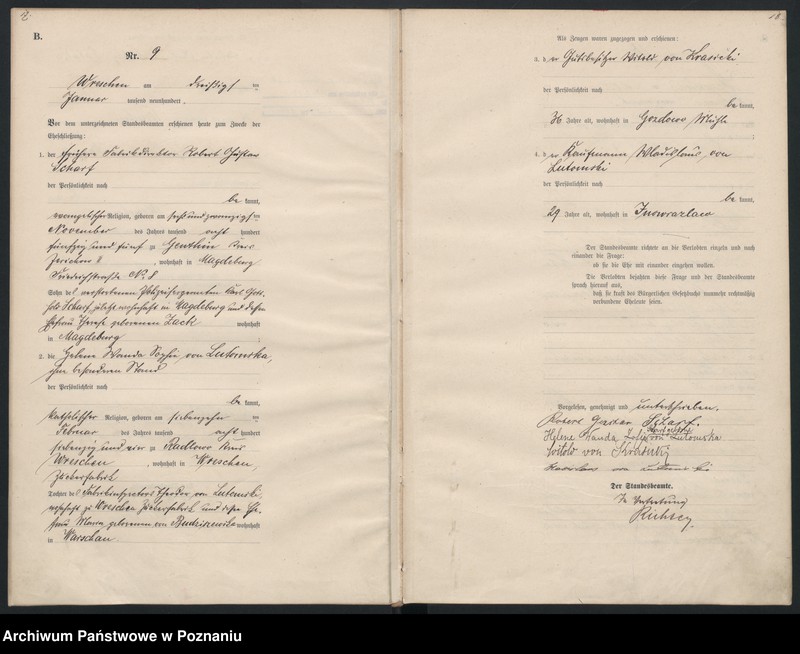 B.
Nr. 9
Wreschen am dreißigsten
Januar tausend neunhundert.
Vor dem unterzeichneten Standesbeamten erschienen heute zum Zwecke der
Eheschließung:
1. der frühere Fabrikdirektor Robert Gustav
Scharf
der Persönlichkeit nach
be kannt,
evangelischer Religion, geboren am sechsundzwanzigsten
November des Jahres tausend acht hundert
fünfzig und fünf zu Genthin Kreis
Jerichow II, wohnhaft in Magdeburg
Friedrichstraße No. 8
Sohn des verstorbenen Polizeisergeanten Karl
Scharf zuletzt wohnhaft in Magdeburg und dessen
Ehefrau geborenen Zack wohnhaft
in Magdeburg
2. die Helene Wanda Sophie von Lutomska,
ohne besonderen Stand
der Persönlichkeit nach
be kannt,
katholischer Religion, geboren am siebenzehnten
Februar des Jahres tausend acht hundert
siebenzig und vier zu Radlowo Kreis
Wreschen, wohnhaft in Wreschen,
Zuckerfabrik
Tochter des Fabrikinspectors Theodor von Lutomski,
wohnhaft zu Wreschen Zuckerfabrik und dessen Ehe-
frau Maria geborenen von wohnhaft
in Warschau
18
Als Zeugen waren zugezogen und erschienen:
3. der Gutsbesitzer Witold von Krasicki
der Persönlichkeit nach
be kannt,
36 Jahre alt, wohnhaft in Gozdowo Mühle
;
4. der Kaufmann Wladislaus von
Lutomski
der Persönlichkeit nach
be kannt,
29 Jahre alt, wohnhaft in Inowrazlaw
Der Standesbeamte richtete an die Verlobten einzeln und nach
einander die Frage:
ob sie die Ehe mit einander eingehen wollen.
Die Verlobten bejahten diese Frage und der Standesbeamte
sprach hierauf aus,
daß sie kraft des Bürgerlichen Gesetzbuchs nunmehr rechtmäßig
verbundene Eheleute seien.
Vorgelesen, genehmigt und unterschrieben.
Robert Gustav Scharf.
Helene Wanda Zofia von Lutomska
Witold von Krasicki
von Lutomski
Der Standesbeamte.
In Vertretung
Archiwum Państwowe w Poznaniu